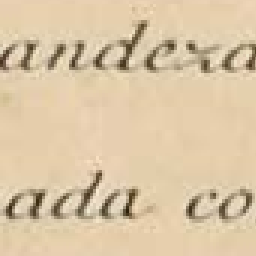 andeza
ada co